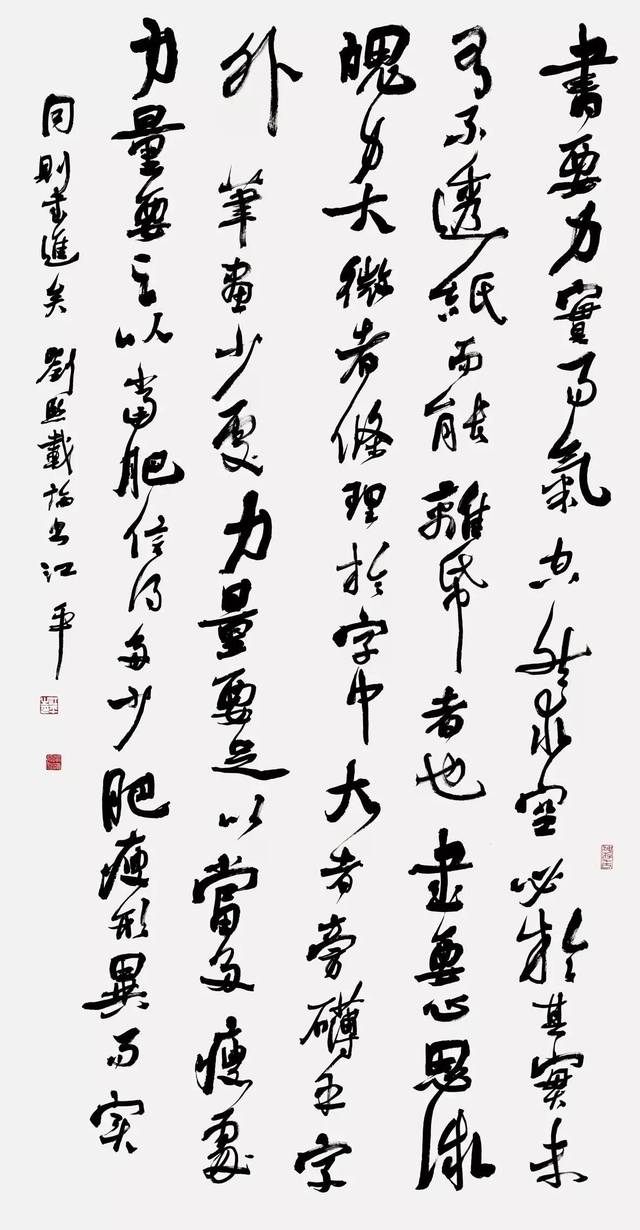 書要力實而氣空然求空必於其實未
有不透紙而能離帋者也書要心思微
魄力大微者條理於字中大者旁礴乎字
外筆畫少處力量要足以當多瘦處
力量要足以當肥信得多少肥瘦形異而实
同則書進矣 劉熙載論書 江平